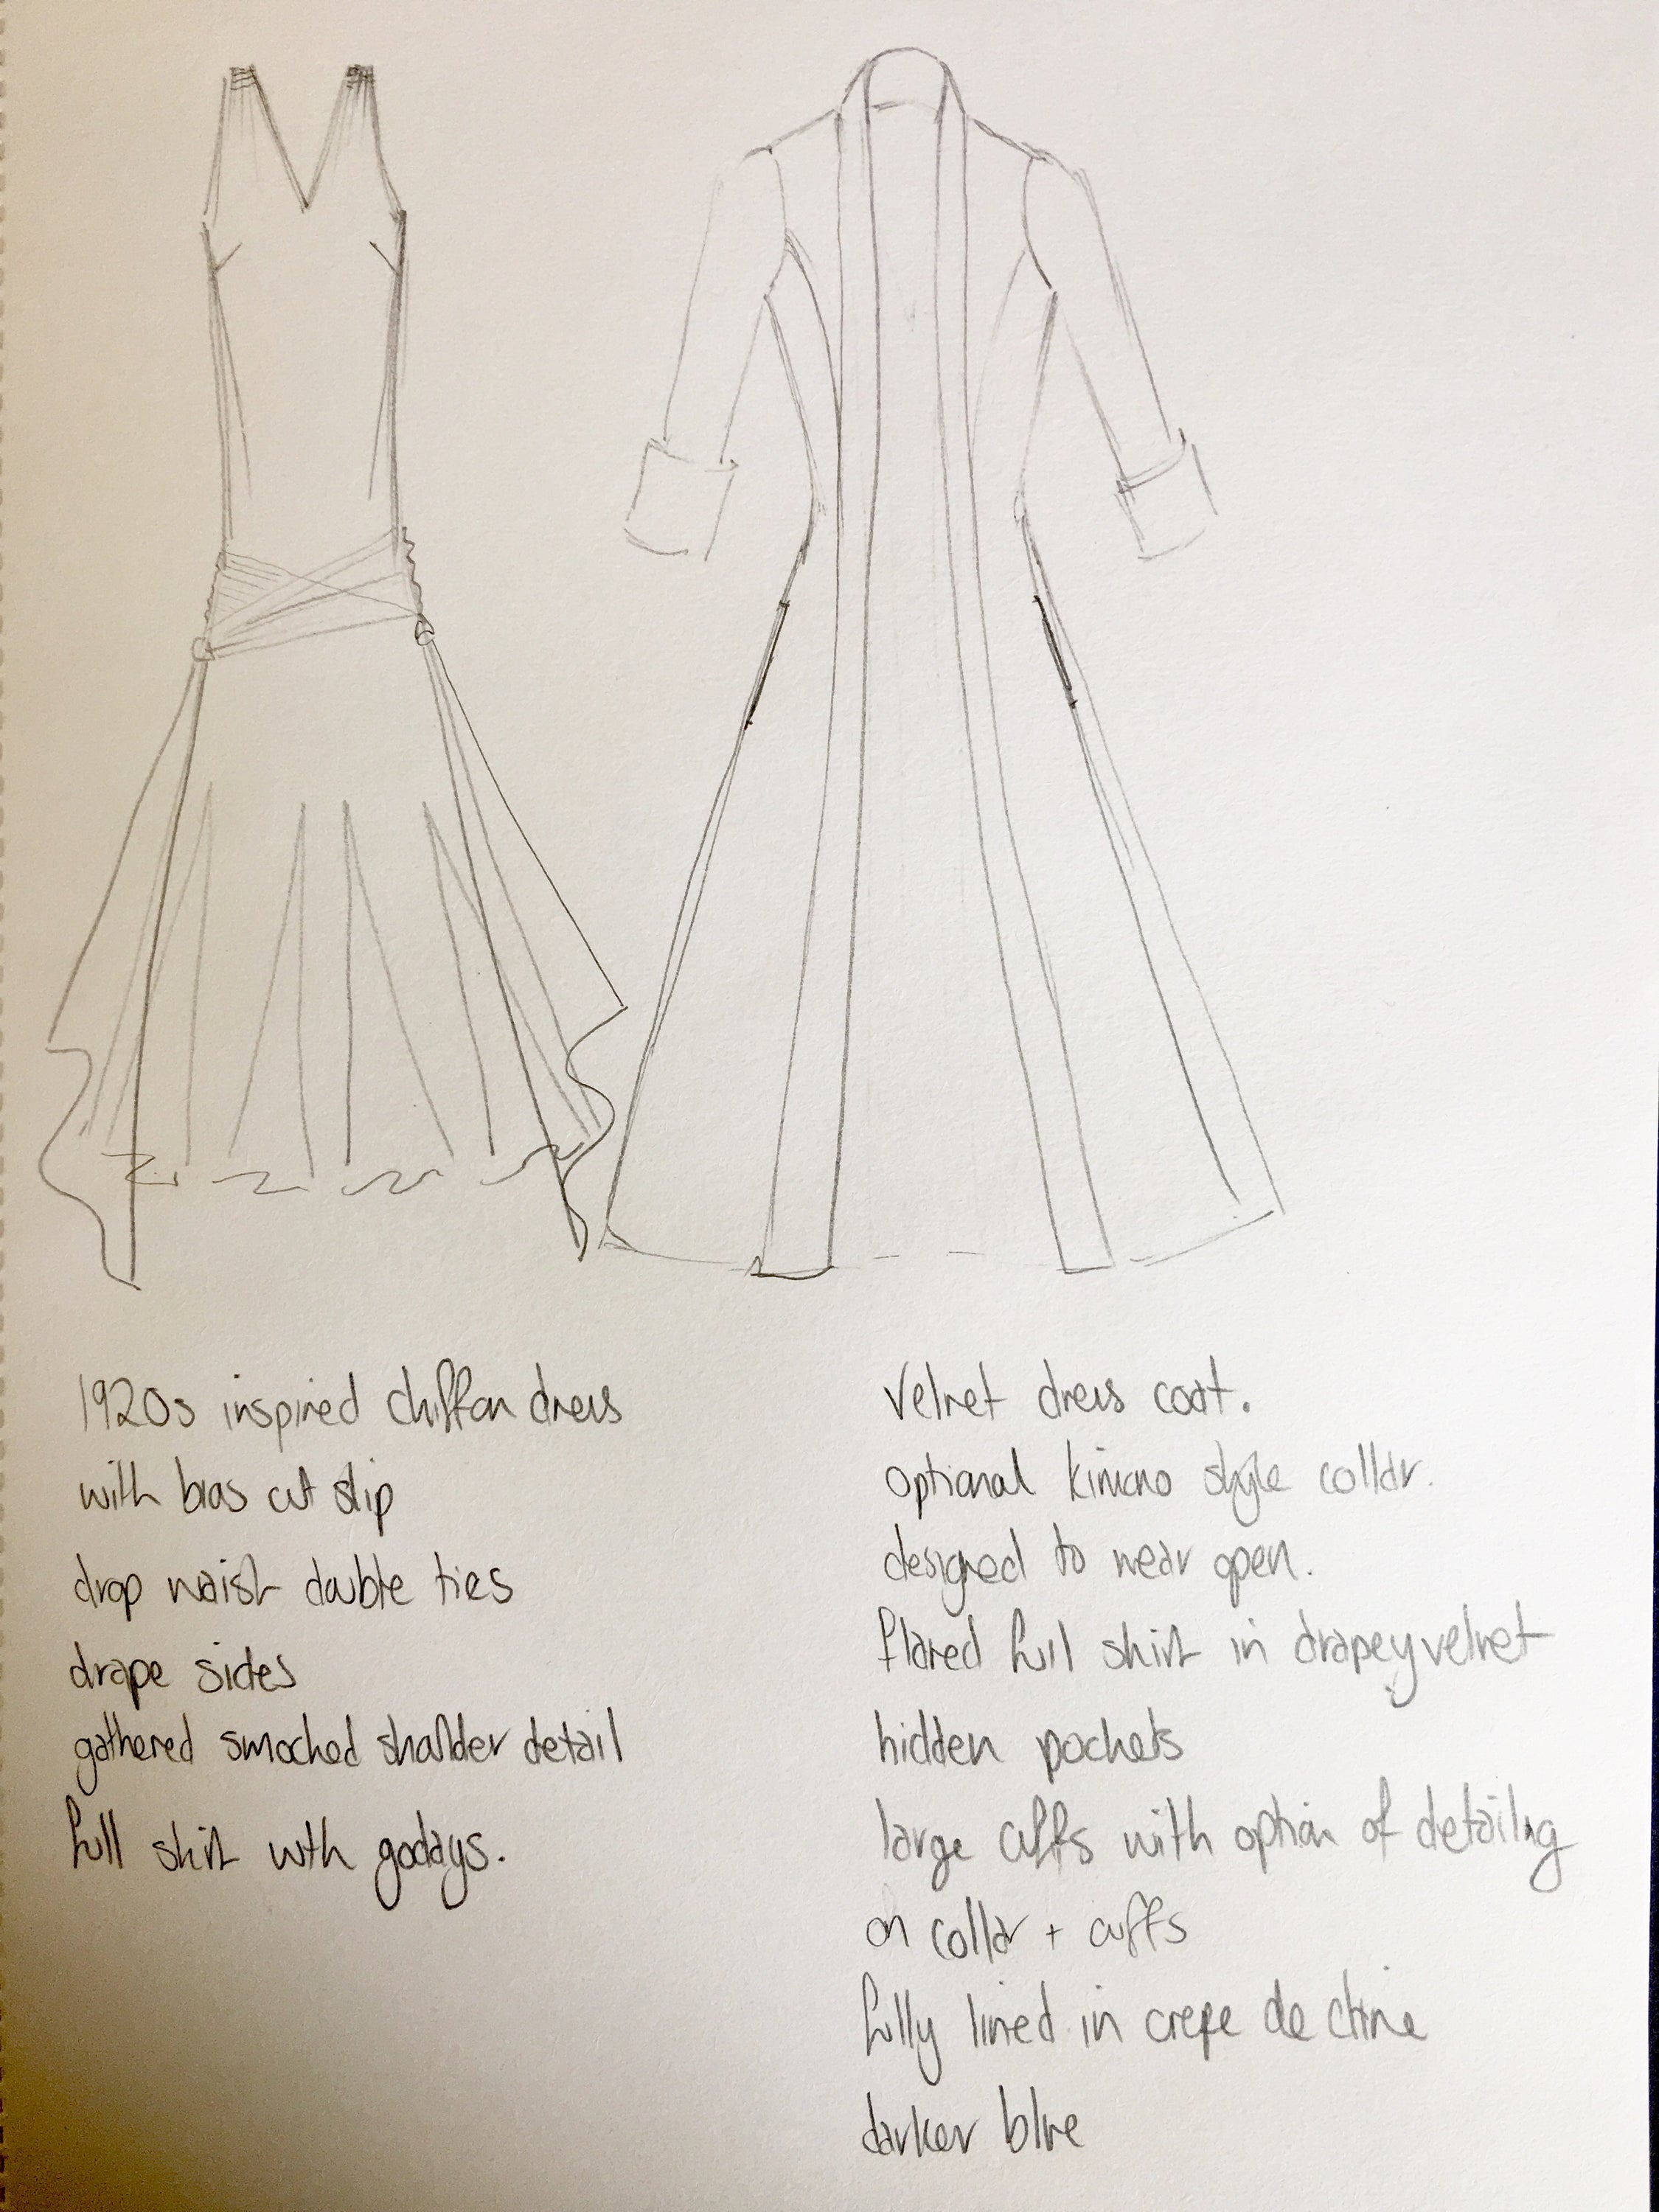 1920s inspired chiffon dress
with bias cut slip
drop waist double ties
drape sides
gathered smocked shoulder detail
full skirt with godays.
Velvet dress coat.
optional kimono style collar.
designed to wear open.
flared full skirt in drapey velvet
hidden pockets
large cuffs with option of detailing
on collar + cuffs
fully lined in crepe de chine
darker blue